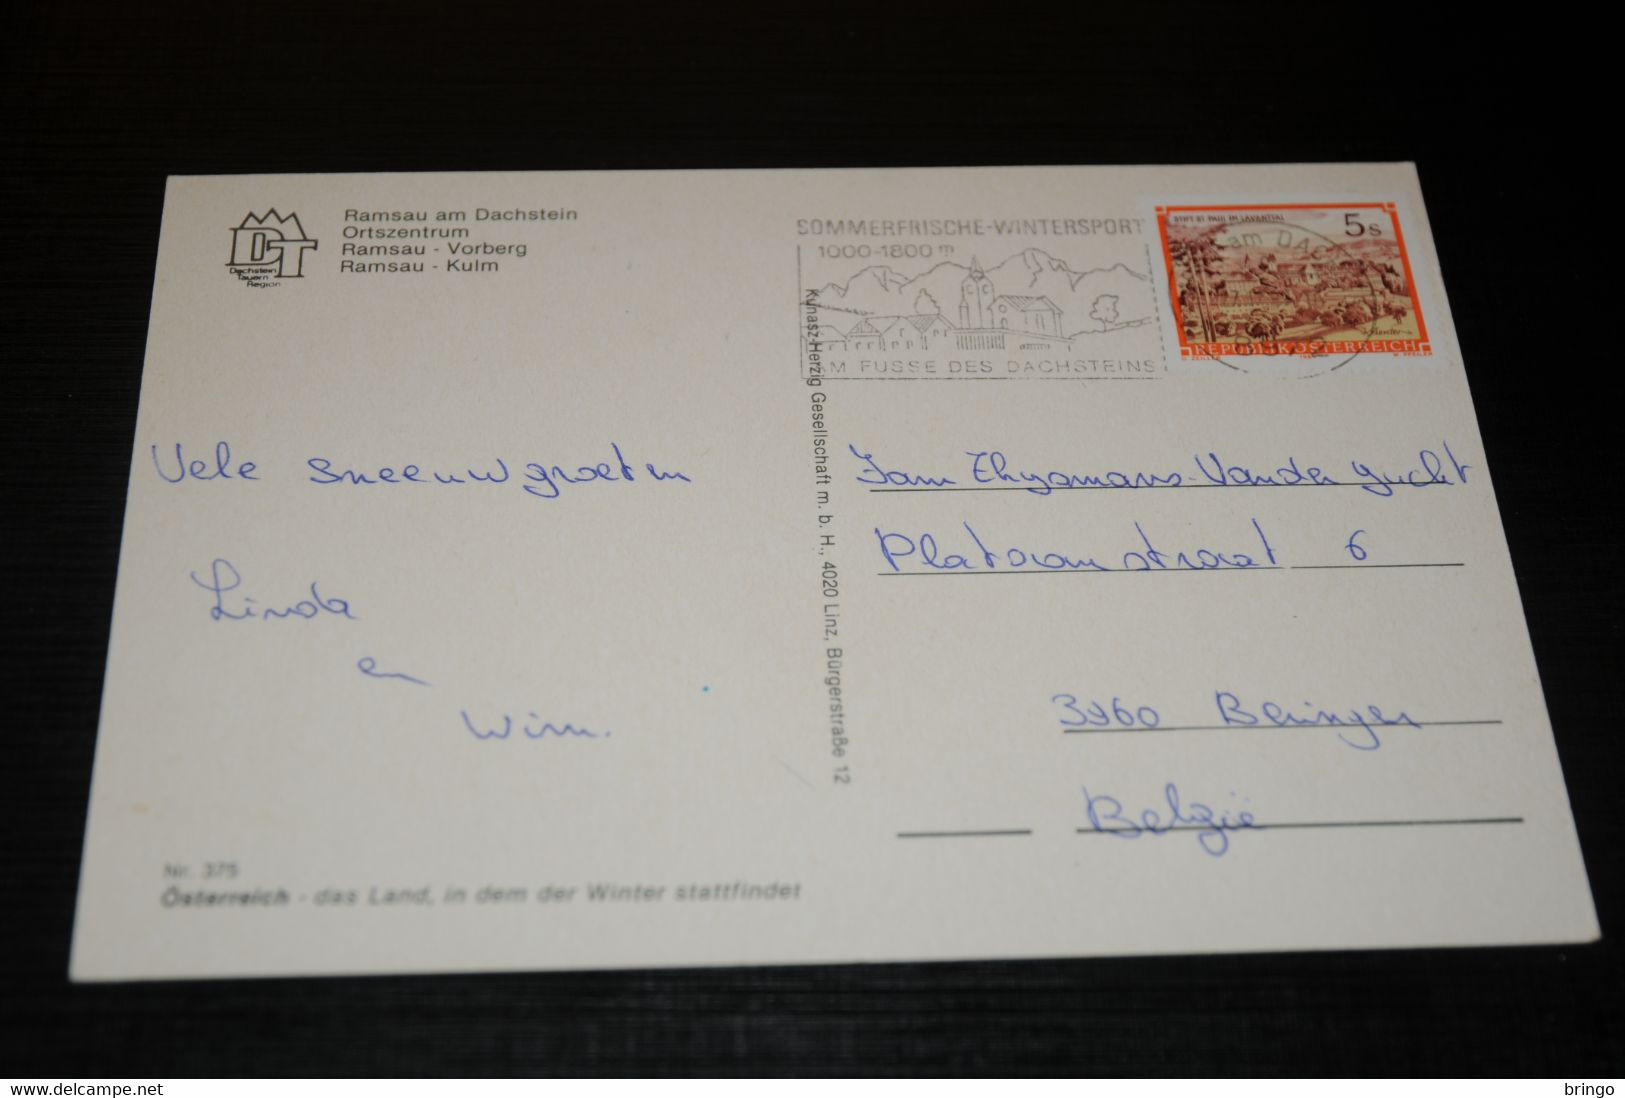 Ramsau am Dachstein
Ortszentrum
Ramsau - Vorberg
Ramsau - Kulm
DT
Dachstein
Tauern
Region
SOMMERFRISCHE-WINTERSPORT
1000-1800 m
AM FUSSE DES DACHSTEINS
STIFT ST. PAUL IM LAVANTTAL
5s
am DACH
REPUBLIK ÖSTERREICH
Kunasz-Herzig Gesellschaft m. b. H., 4020 Linz, Bürgerstraße 12
Vele sneeuwgroeten
Linda
en
Wim.
Fam Thysmans-Vander gucht
Plataanstraat 6
3960 Beringen
België
Nr. 375
Österreich - das Land, in dem der Winter stattfindet
www.delcampe.net
bringo